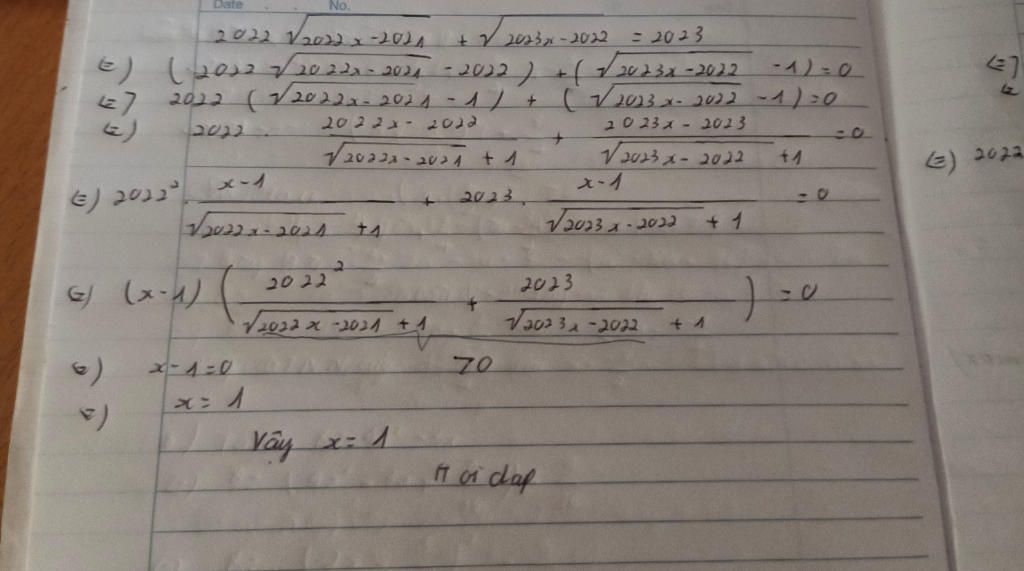 Date . . No.
2022 √(2022x-2021) + √(2023x-2022) = 2023
(=) (2022 √(2022x-2021) - 2022) + (√(2023x-2022) - 1) = 0
(=) 2022 (√(2022x-2021) - 1) + (√(2023x-2022) - 1) = 0
(=) 2022 . (2022x-2022)/(√(2022x-2021) + 1) + (2023x-2023)/(√(2023x-2022) + 1) = 0
(=) 2022
(=) 2022² . (x-1)/(√(2022x-2021) + 1) + 2023 . (x-1)/(√(2023x-2022) + 1) = 0
(=) (x-1) (2022²/(√(2022x-2021) + 1) + 2023/(√(2023x-2022) + 1)) = 0
(=) x-1=0 >0
(=) x = 1
Vậy x = 1
Hoi dap